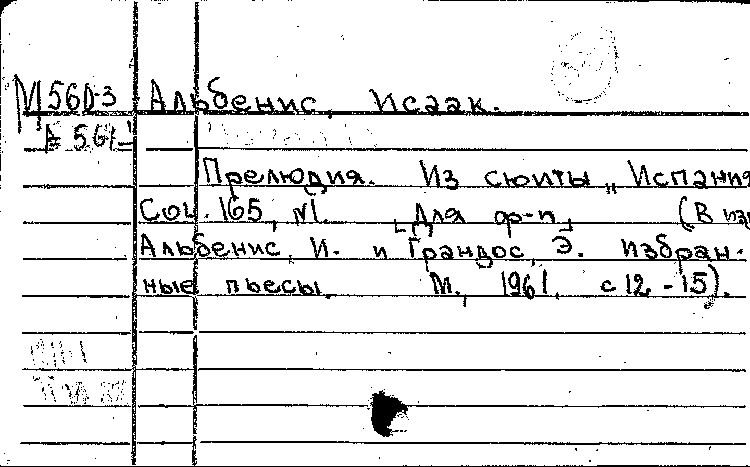 М560-3 Альбенис, Исаак.
А 561
Прелюдия. Из сюиты „Испания
Соч. 165, №1. [Для ф-п] (В изд
Альбенис, И. и Грандос, Э. Избран-
ные пьесы. М., 1961, с 12-15).